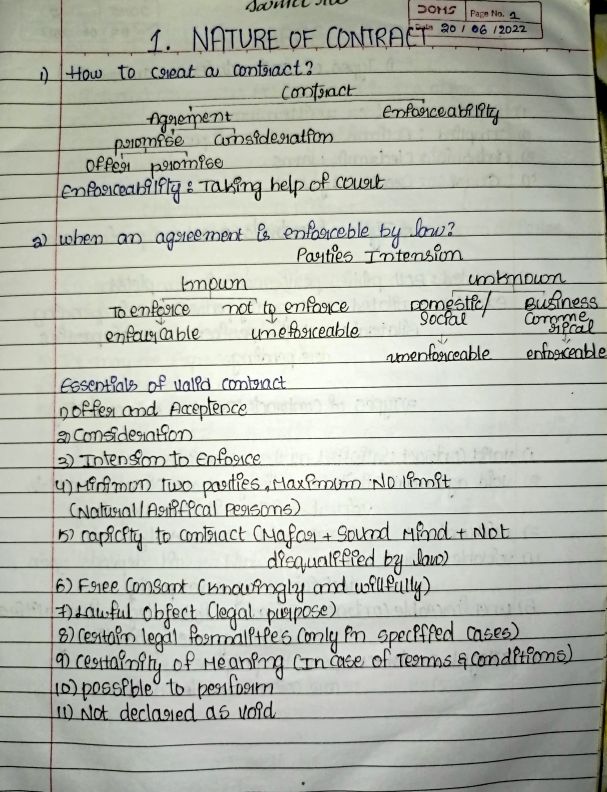 DOMS Page No. 1
Date 20 / 06 / 2022
1. NATURE OF CONTRACT
1) How to creat a contract?
Contract
Agrement Enforceability
promise consideration
Offer promise
Enforceability : Taking help of court
2) when an agreement is enforceble by law?
Parties Intension
known unknown
To enforce not to enforce Domestic/ Business
Social Comme
rical
enfourcable uneforceable
unenforceable enforceable
Essentials of valid contract
1) Offer and Aceptence
2) Consideration
3) Intension to Enforce
4) Minimon two parties, Maximum No limit
(Natural / Artiffical Persons)
5) capicity to contract (Major + Sound Mind + Not
disqualified by law)
6) Free Consant (knowingly and willfully)
7) Lawful Object (legal purpose)
8) Certain legal formalities (only in speciffed cases)
9) certainity of Meaning (In case of Terms & Conditions)
10) possible to perform
11) Not declared as void